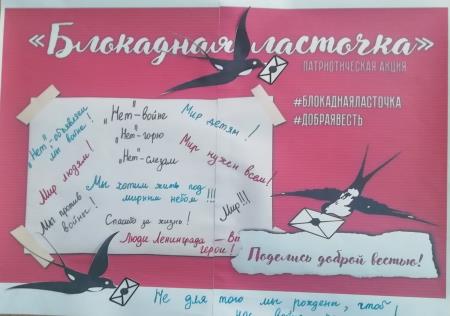 «Блокадная ласточка»
ПАТРИОТИЧЕСКАЯ АКЦИЯ
#БЛОКАДНАЯЛАСТОЧКА
#ДОБРАЯВЕСТЬ
"Нет"-войне
"Нет"-горю
"Нет"-слезам
Мир детям!
Мир нужен всем!
Мир людям!
Мы хотим жить под
мирным небом!!!
Мир!!!
Мы против
войны!
Спасибо за жизнь!
Люди Ленинграда –
герои!
Поделись доброй вестью!
Не для того мы рождены, чтоб